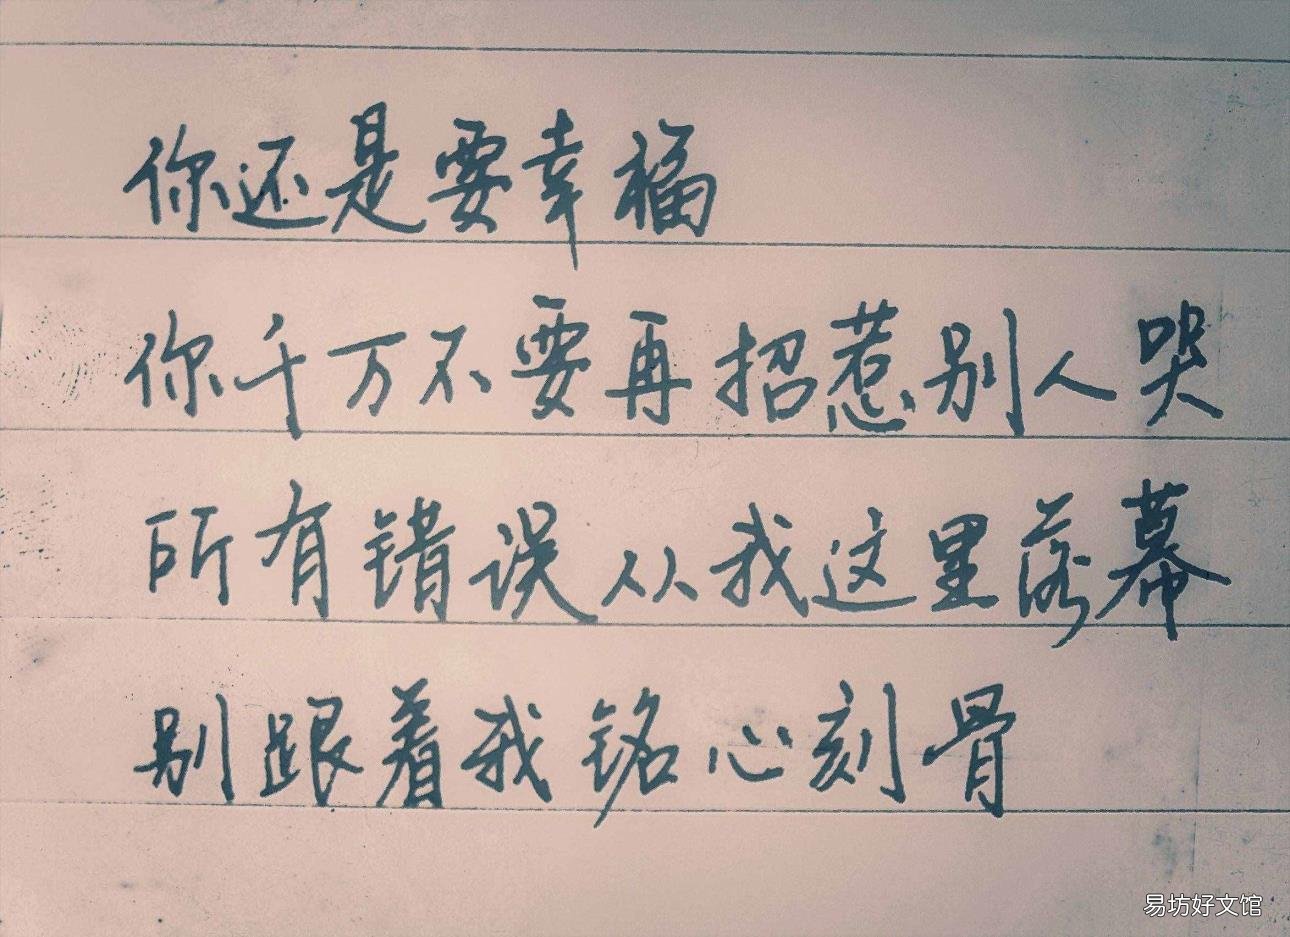 你还是要幸福
你千万不要再招惹别人哭
所有错误从我这里落幕
别跟着我铭心刻骨
易坊好文馆